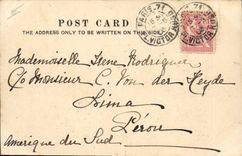 POST CARD
THE ADDRESS ONLY TO BE WRITTEN ON THIS SIDE
PARIS · 71
VICTOR
Mademoiselle Irene Rodriguez
C/o Monsieur C. Von der Heyde
Lima
Pérou
Amerique du Sud